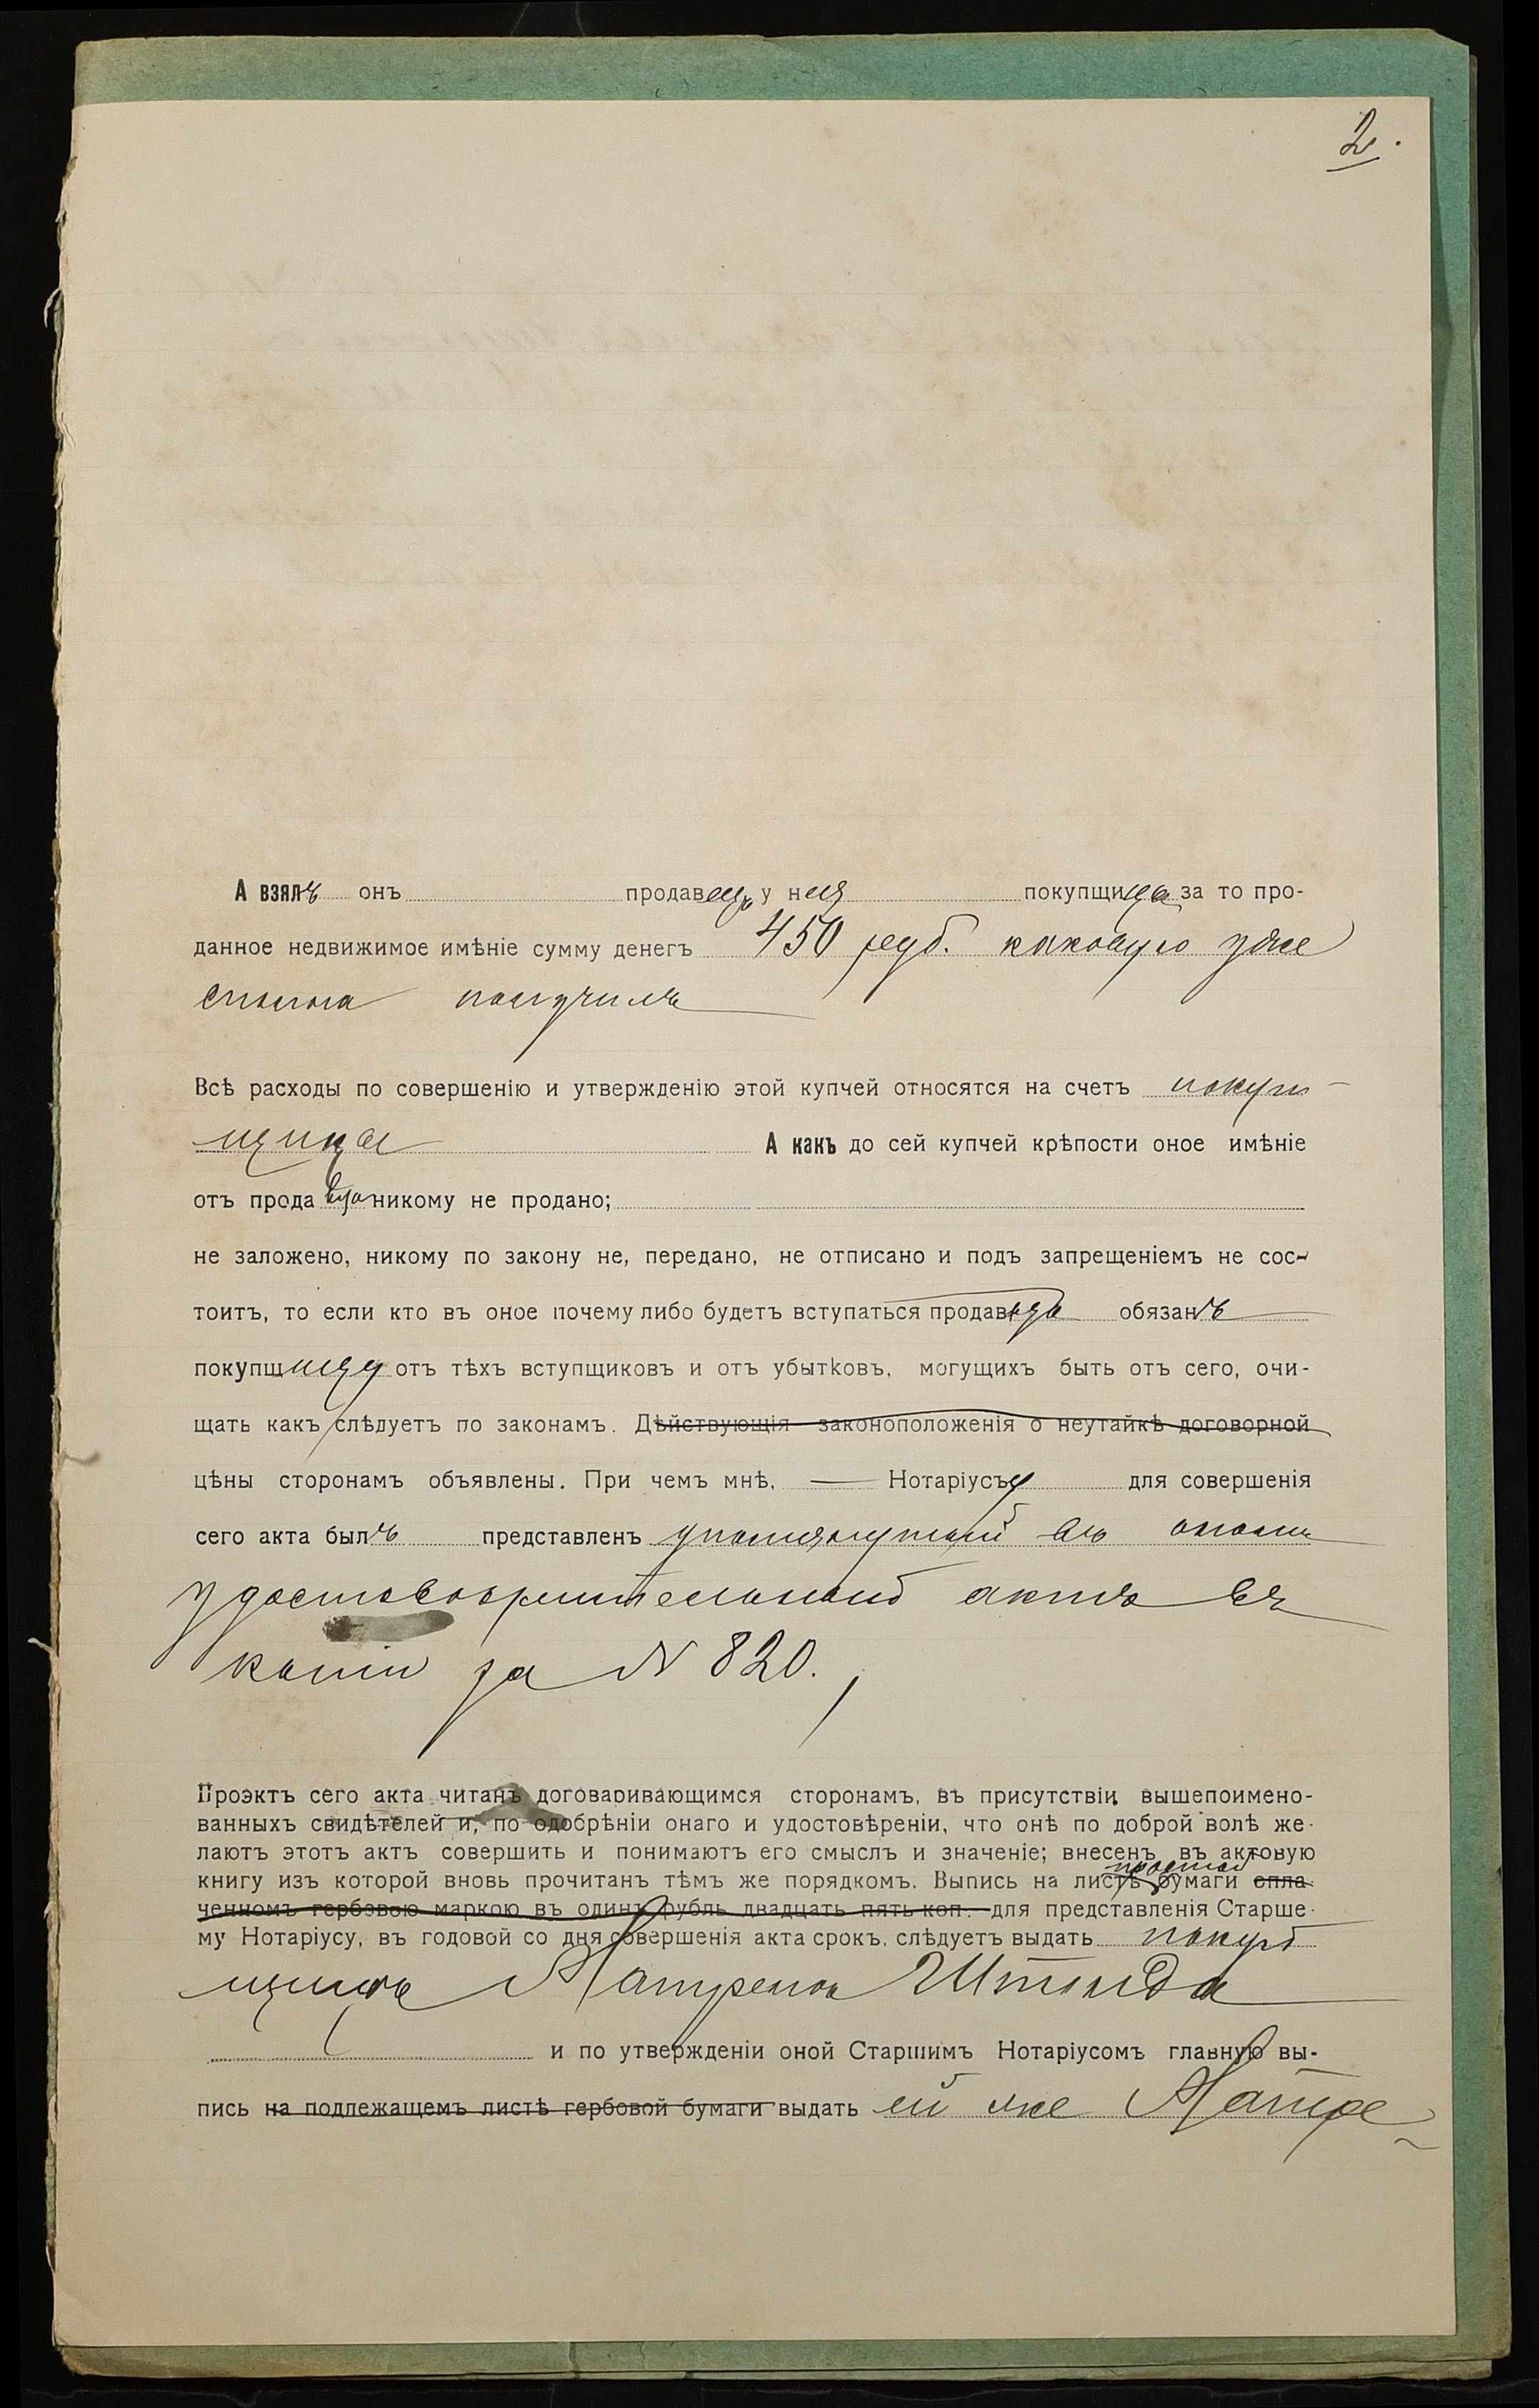 2.
А взялъ онъ продавецъ у нея покупщицы за то про-
данное недвижимое имѣніе сумму денегъ 450 руб. каковую уже
сполна получилъ
Всѣ расходы по совершенію и утвержденію этой купчей относятся на счетъ покуп-
щицы А какъ до сей купчей крѣпости оное имѣніе
отъ продавца никому не продано;
не заложено, никому по закону не, передано, не отписано и подъ запрещеніемъ не сос-
тоитъ, то если кто въ оное почему либо будетъ вступаться продавецъ обязанъ
покупщицу отъ тѣхъ вступщиковъ и отъ убытковъ, могущихъ быть отъ сего, очи-
щать какъ слѣдуетъ по законамъ. Дѣйствующія законоположенія о неутайкѣ договорной
цѣны сторонамъ объявлены. При чемъ мнѣ, — Нотаріусъу для совершенія
сего акта былъ представленъ упомянутый въ
удостовѣрительный актъ въ
копіи за N 820.
Проэктъ сего акта читанъ договаривающимся сторонамъ, въ присутствіи вышепоимено-
ванныхъ свидѣтелей и, по одобрѣніи онаго и удостовѣреніи, что онѣ по доброй волѣ же-
лаютъ этотъ актъ совершить и понимаютъ его смыслъ и значеніе; внесенъ въ актовую
простой
книгу изъ которой вновь прочитанъ тѣмъ же порядкомъ. Выпись на листѣ бумаги опла-
ченномъ гербовою маркою въ одинъ рубль двадцать пять коп. для представленія Старше-
му Нотаріусу, въ годовой со дня совершенія акта срокъ, слѣдуетъ выдать покуп
щицѣ
и по утвержденіи оной Старшимъ Нотаріусомъ главную вы-
пись на подлежащемъ листѣ гербовой бумаги выдать ей же